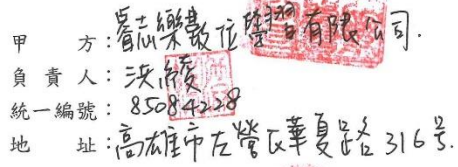 甲方:睿志樂數位學習有限公司.
負責人:洪
統一編號:85084228
地址:高雄市左營区華夏路316号.